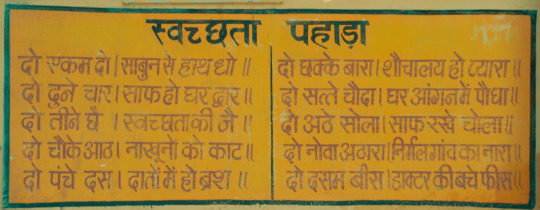 स्वच्छता पहाड़ा
दो एकम दो। साबुन से हाथ धो॥
दो दुने चार। साफ हो घर द्वार॥
दो तीने छै। स्वच्छता की जै॥
दो चौके आठ। नाखूनों को काट॥
दो पंचे दस। दातों में हो ब्रश॥
दो छक्के बारा। शौचालय हो प्यारा॥
दो सत्ते चौदा। घर आंगन में पौधा॥
दो अठे सोला। साफ रखे चोला॥
दो नोवा अठारा। निर्मल गांव का नारा॥
दो दसम बीस। डाक्टर की बचे फीस॥